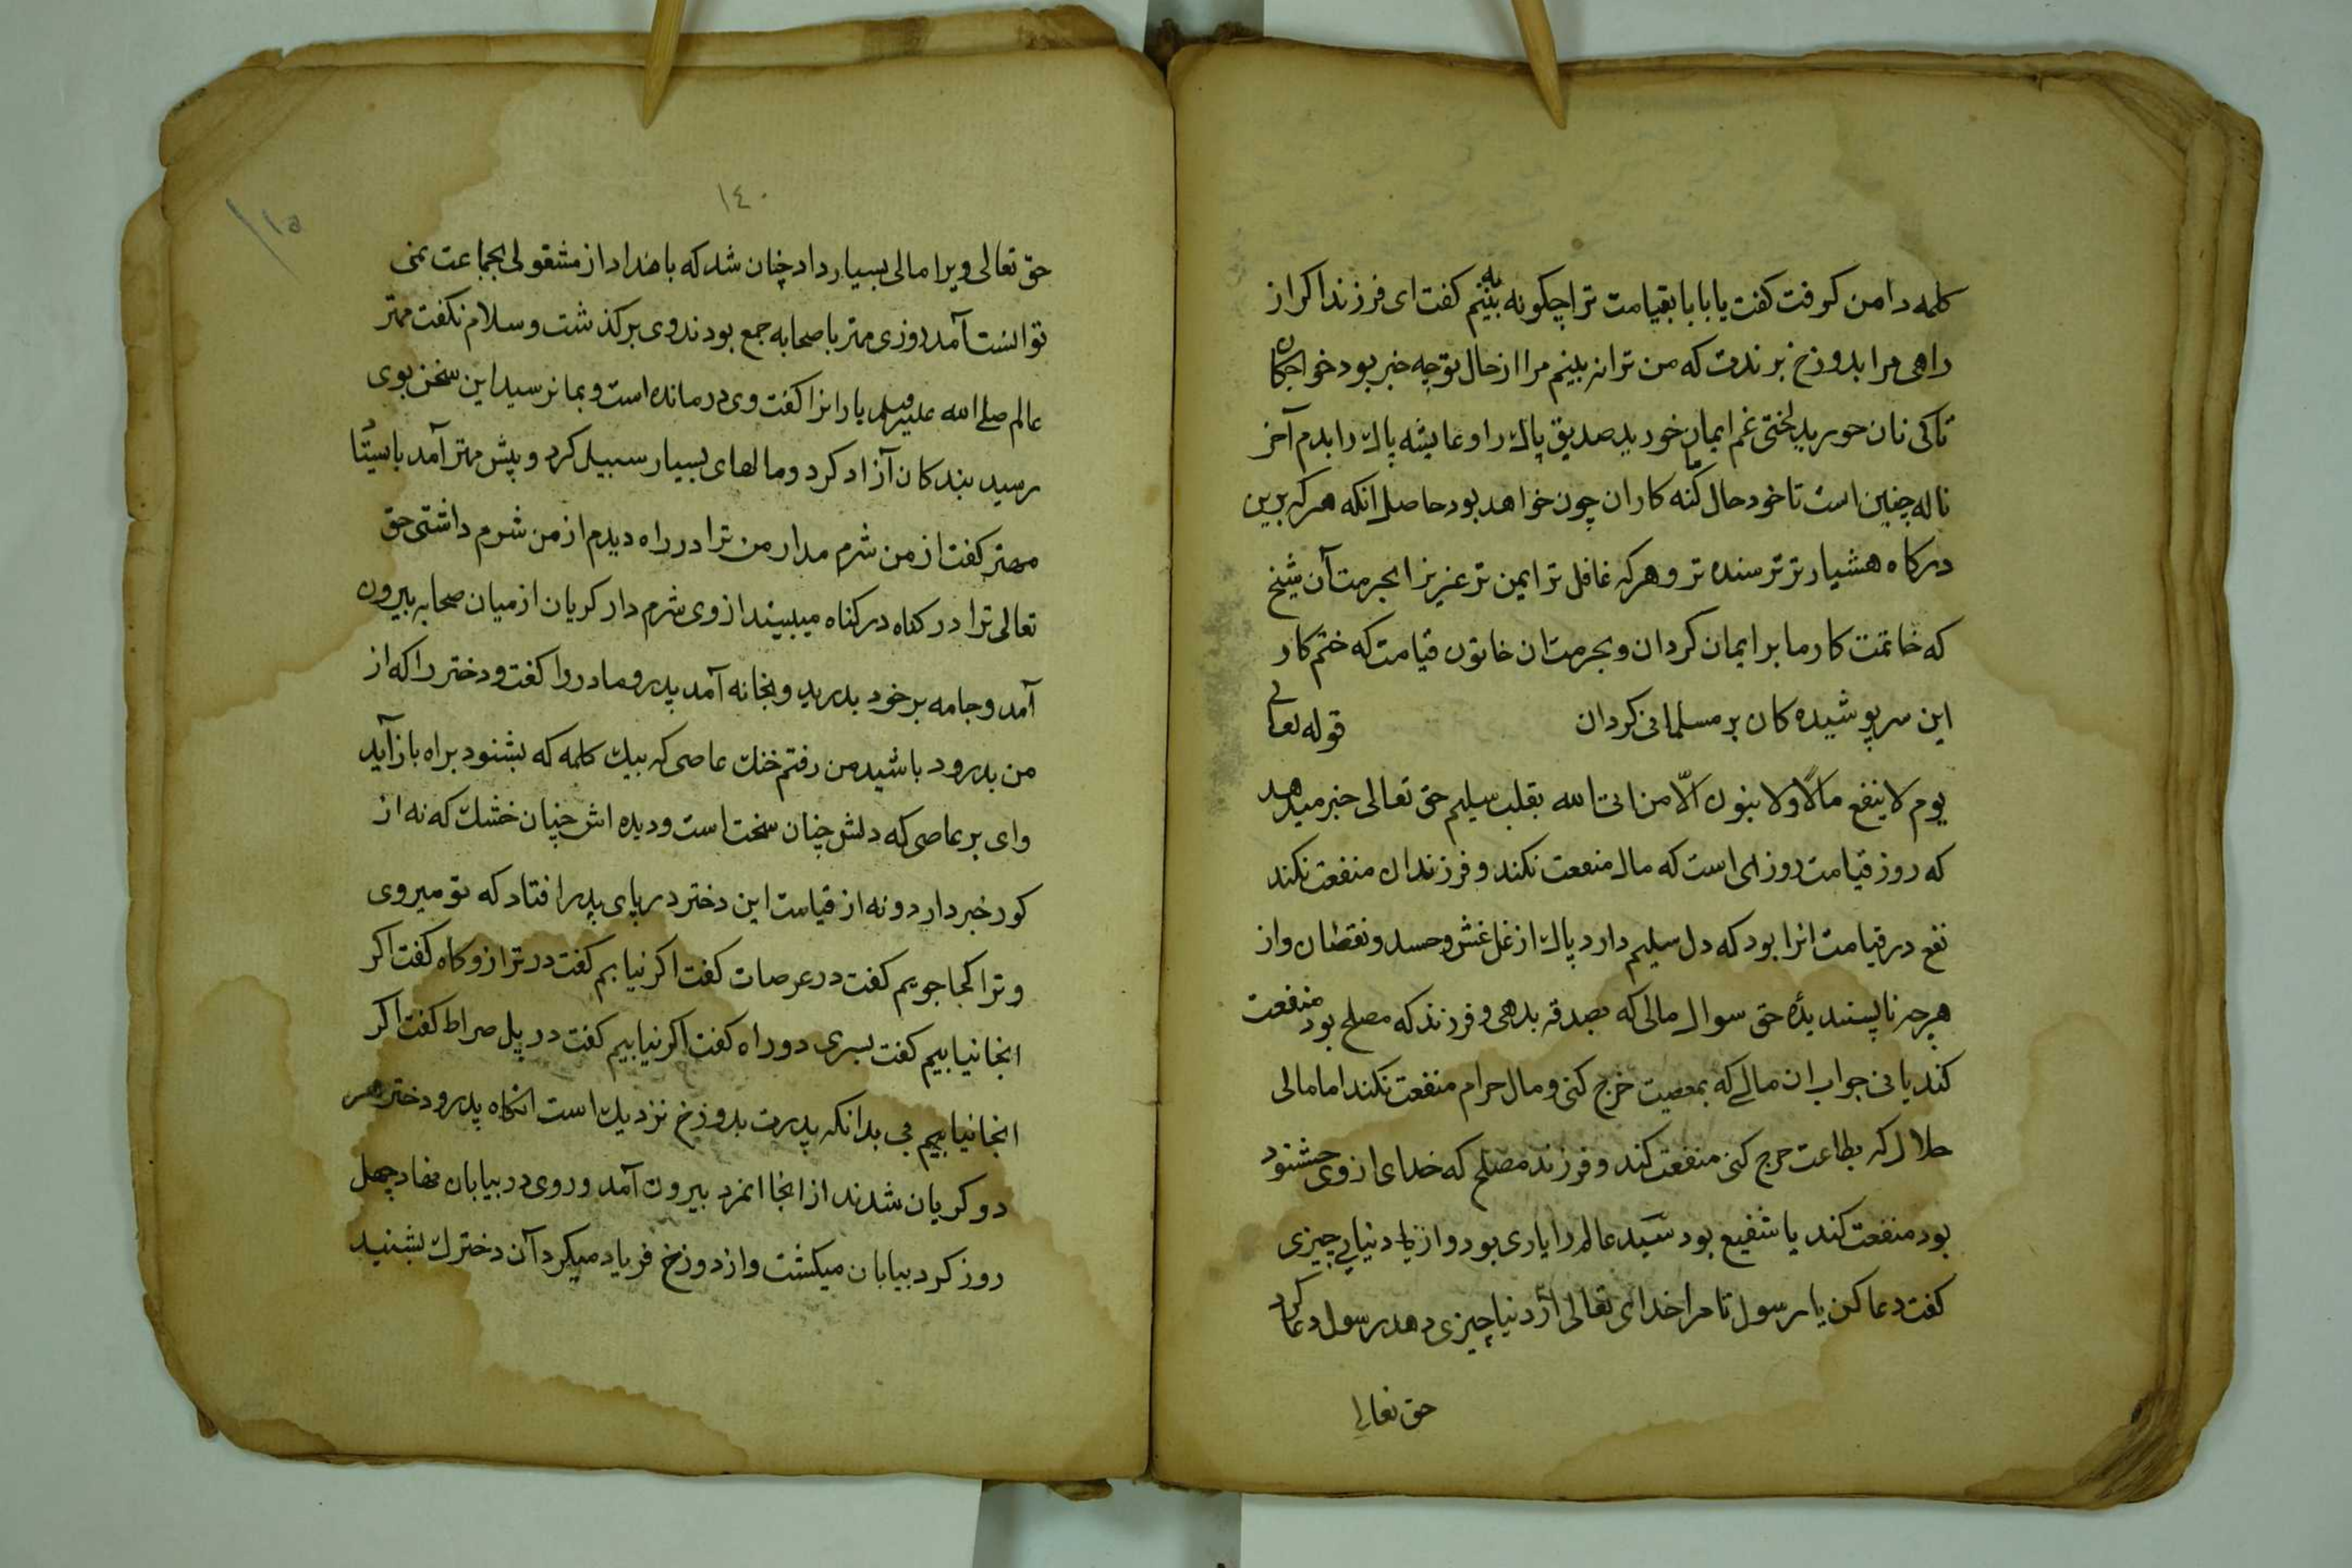 کلمه دامن کرفت کفت یا بابا بقیامت ترا چکونه به بینم کفت ای فرزند اکر از
راهی مرا بدوزخ برندت که من ترا نه بینم مرا از حال تو چه خبر بود خواجکان
تا کی نان خورید لختی غم ایمان خورید صدیق پاك را و عایشه پاك را بدم آخر
ناله چنین است تا خود حال ما کنه کاران چون خواهد بود حاصل انکه هر که برین
درکاه هشیارتر ترسنده تر و هر که غافل تر ایمن تر عزیزا بحرمت آن شیخ
که خاتمت کار ما بر ایمان کردان و بحرمت ان خاتون قیامت که ختم کار
این سر پوشیده کان بر مسلمانی کردان قوله تعالی
یوم لا ینفع مالاً ولا بنون الّا من اتی الله بقلب سلیم حق تعالی خبر میدهد
که روز قیامت روزی است که مال منفعت نکند و فرزندان منفعت نکند
نفع در قیامت انرا بود که دل سلیم دارد پاك از غل غش و حسد و نقصان و از
هر چه ناپسندیدهٔ حق سوال مالی که بصدقه بدهی و فرزند که مصلح بود منفعت
کند یا نی جواب ان مالی که بمعصیت خرج کنی و مال حرام منفعت نکند اما مالی
حلال که بطاعت خرج کنی منفعت کند و فرزند مصلح که خدای از وی خشنود
بود منفعت کند یا شفیع بود سید عالم را یاری بود و از دنیایی چیزی
کفت دعا کن یا رسول تا مرا خدای تعالی از دنیا چیزی دهد رسول دعا کرد
حق تعالی
١٤٠
١١٥
حق تعالی ویرا مالی بسیار داد چنان شد که بامداد از مشغولی بجماعت نمی
توانست آمد روزی مهتر با صحابه جمع بودند وی برکذشت و سلام نکفت مهتر
عالم صلی الله علیه وسلم یارانرا کفت وی درمانده است و بما نرسید این سخن بوی
رسید بندکان آزاد کرد و مالهای بسیار سبیل کرد و پیش مهتر آمد
مهتر کفت از من شرم مدار من ترا در راه دیدم از من شرم داشتی حق
تعالی ترا در کناه در کناه میبیند از وی شرم دار کریان از میان صحابه بیرون
آمد و جامه بر خود بدرید و بخانه آمد پدر و مادر را کفت و دختر را که از
من بدرود باشید من رفتم خنك عاصی که بیك کلمه که بشنود براه باز آید
وای بر عاصی که دلش چنان سخت است و دیده اش چنان خشك که نه از
کور خبر دارد و نه از قیامت این دختر در پای پدر افتاد که تو میروی
و ترا کجا جویم کفت در عرصات کفت اکر نیابم کفت در ترازوکاه کفت اکر
انجا نیابیم کفت بسری دو راه کفت اکر نیابیم کفت در پل صراط کفت اکر
انجا نیابیم بدانکه پدرت بدوزخ نزدیك است انکاه پدر و دختر هر
دو کریان شدند از انجا انمرد بیرون آمد و روی در بیابان نهاد چهل
روز کرد بیابان میکشت و از دوزخ فریاد میکرد آن دخترك بشنید